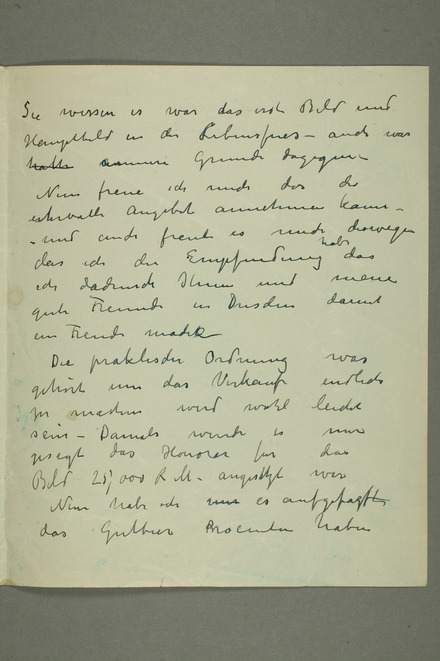 Sie wissen es war das erste Bild und
Hauptbild in der Lebensfries – auch war
hatte immer Grunde dagegen –
Nun freue ich mich das ich die
ehrvolle Angebot annehmen kann –
– und auch freut es mich deswegen
das ich die Empfindung habe das
ich dadurch Ihnen und meine
gute Freunde in Dresden damit
ein Freude mache
Die praktische Ordnung was
gehört um das Verkauf endlich
zu machen wird wohl leicht
sein – Damals wurde es mir
gesagt das Honorar für das
Bild 25,000 R M – angesetzt war
Nun habe ich nun es aufgefasst
das Gutbier Procenten haben